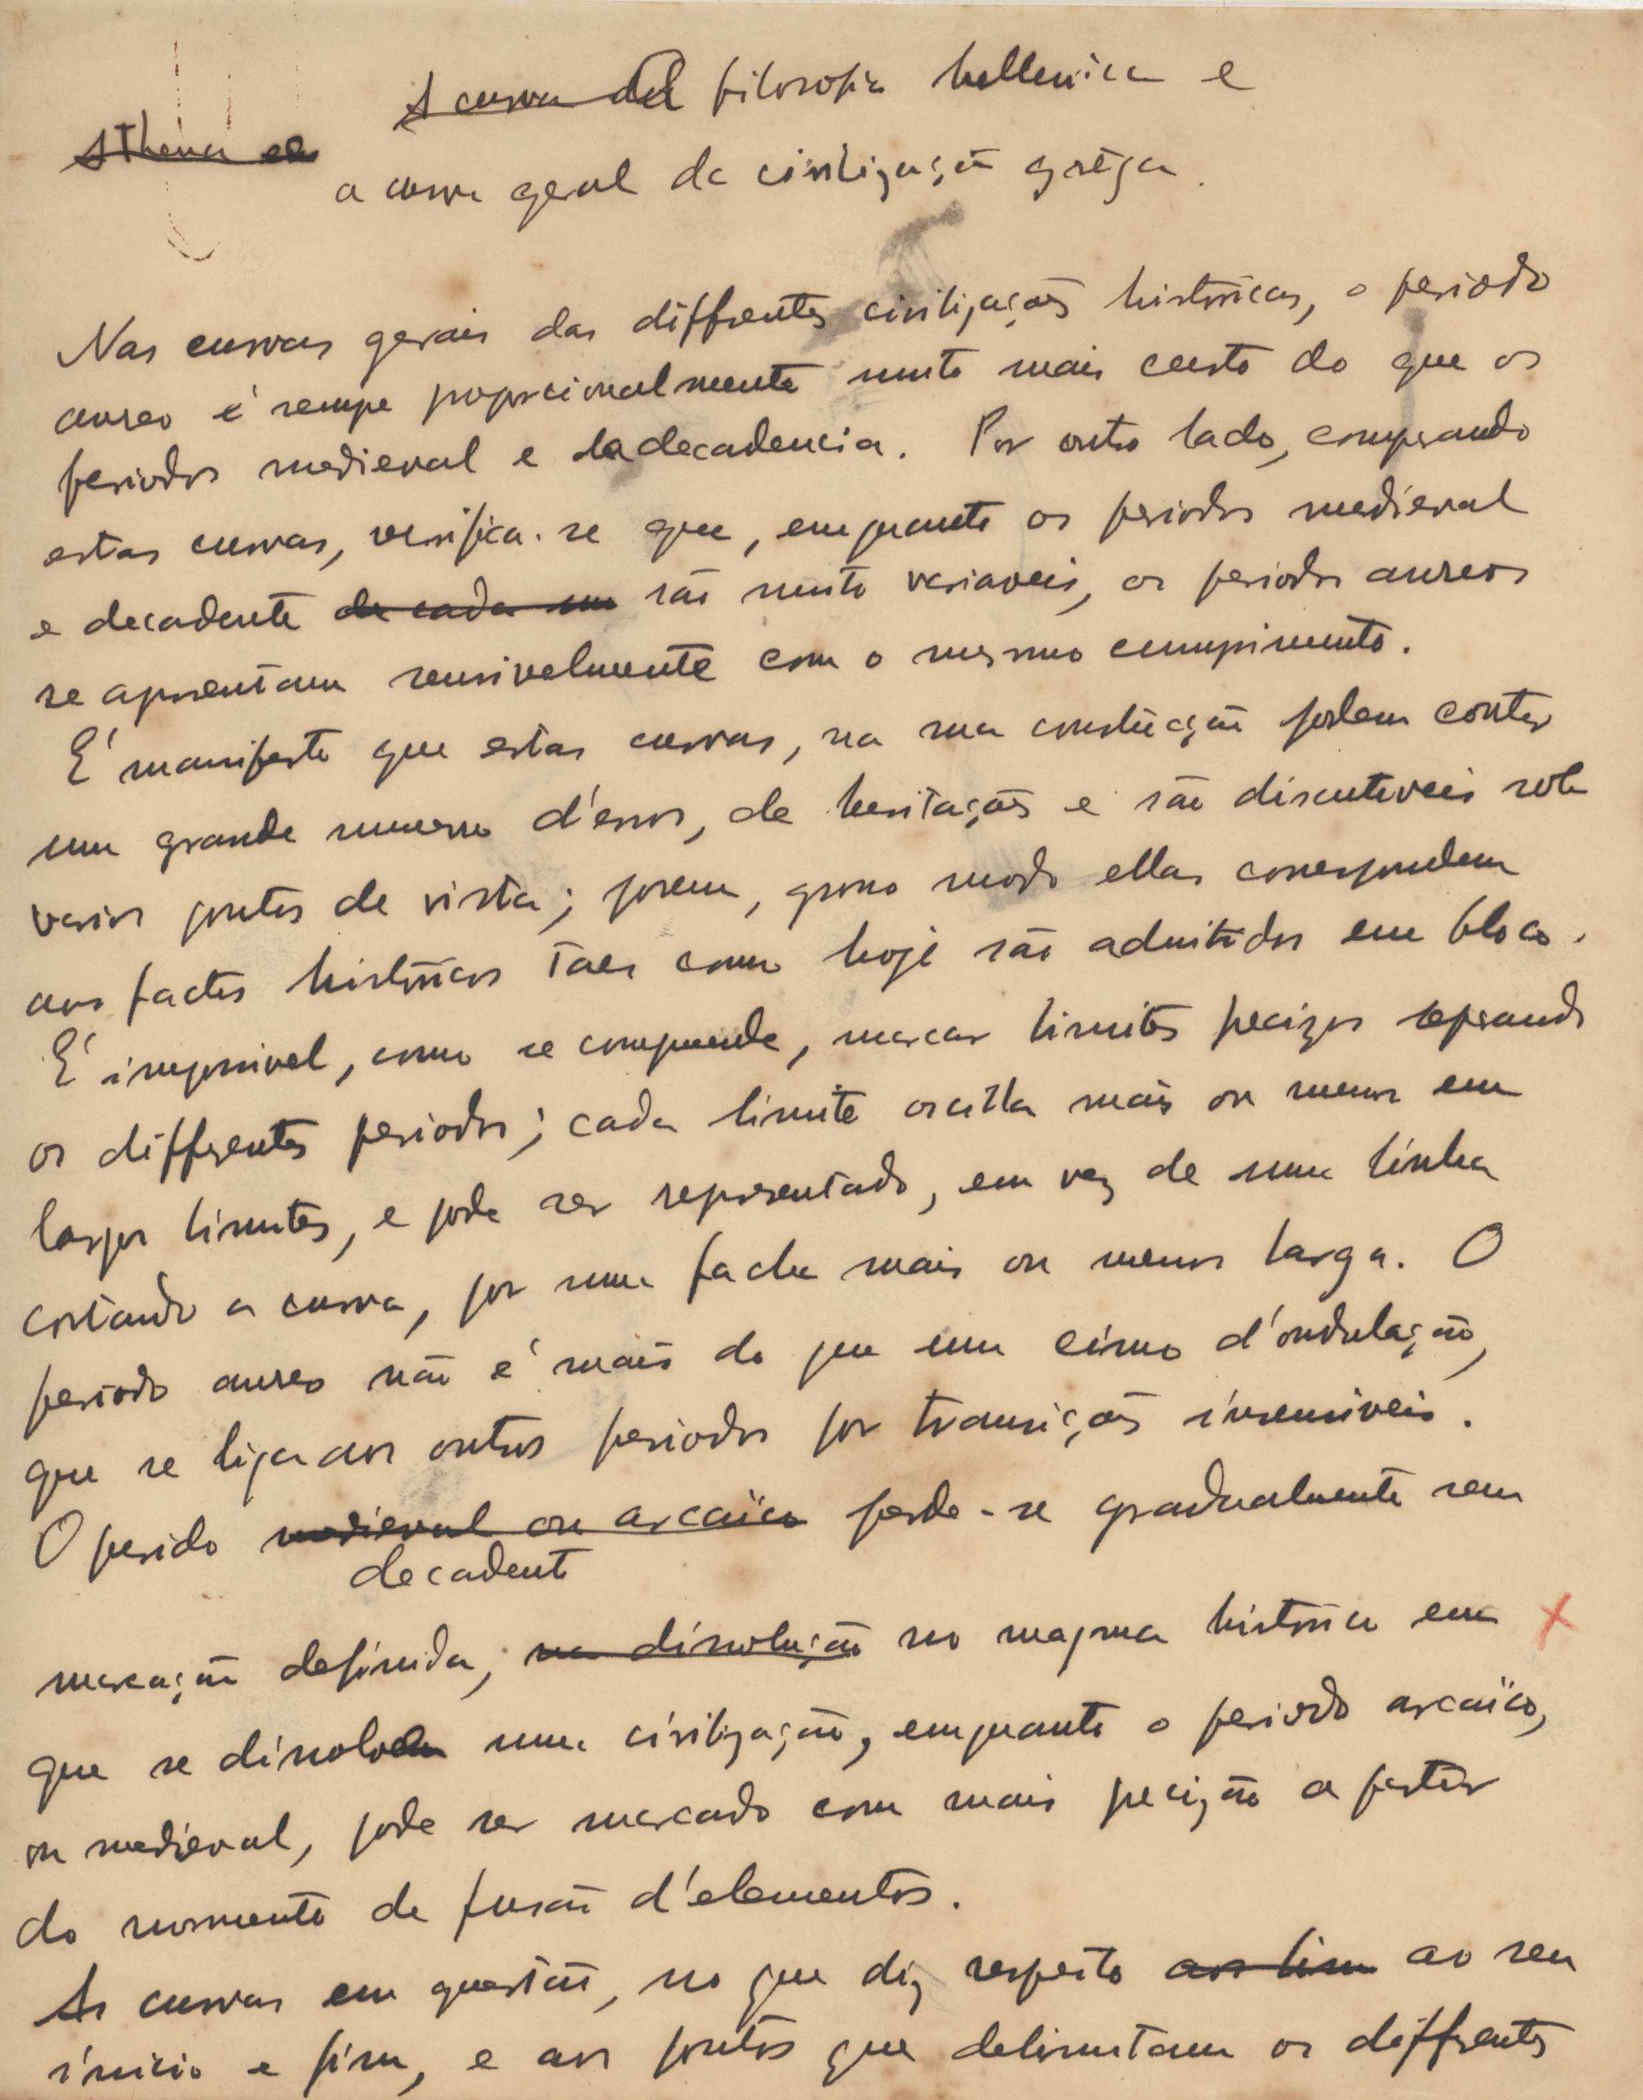 A curva da filosofia hellenica e
Athena e a
a curva geral da civilização grêga.
Nas curvas gerais das differentes civilizações históricas, o periodo
aureo é sempre proporcionalmente muito mais curto do que os
periodos medieval e da decadencia. Por outro lado, comparando
estas curvas, verifica-se que, emquanto os periodos medieval
e decadente de cada um são muito variaveis, os periodos aureos
se apresentam sensivelmente com o mesmo cumprimento.
É manifesto que estas curvas, na sua construcção podem conter
um grande numero d'erros, de hesitações e são discutiveis sob
varios pontos de vista; porem, grosso modo ellas correspondem
aos factos históricos taes como hoje são admitidos em bloco.
É impossivel, como se comprende, marcar limites precizos separando
os differentes periodos; cada limite oscilla mais ou menos em
largos limites, e pode ser representado, em vez de uma linha
cortando a curva, por uma facha mais ou menos larga. O
periodo aureo não é mais do que um cimo d'ondulação,
que se liga aos outros periodos por transições insensiveis.
O perido medieval ou arcaïco perde-se gradualmente sem
decadente
marcação definida, na dissolução no magma histórico em
que se dissolve uma civilização, emquanto o periodo arcaïco,
ou medieval, pode ser marcado com mais precizão a partir
do momento de fusão d'elementos.
As curvas em questão, no que diz respeito aos lim ao seu
inicio e fim, e aos pontos que delimitam os differentes